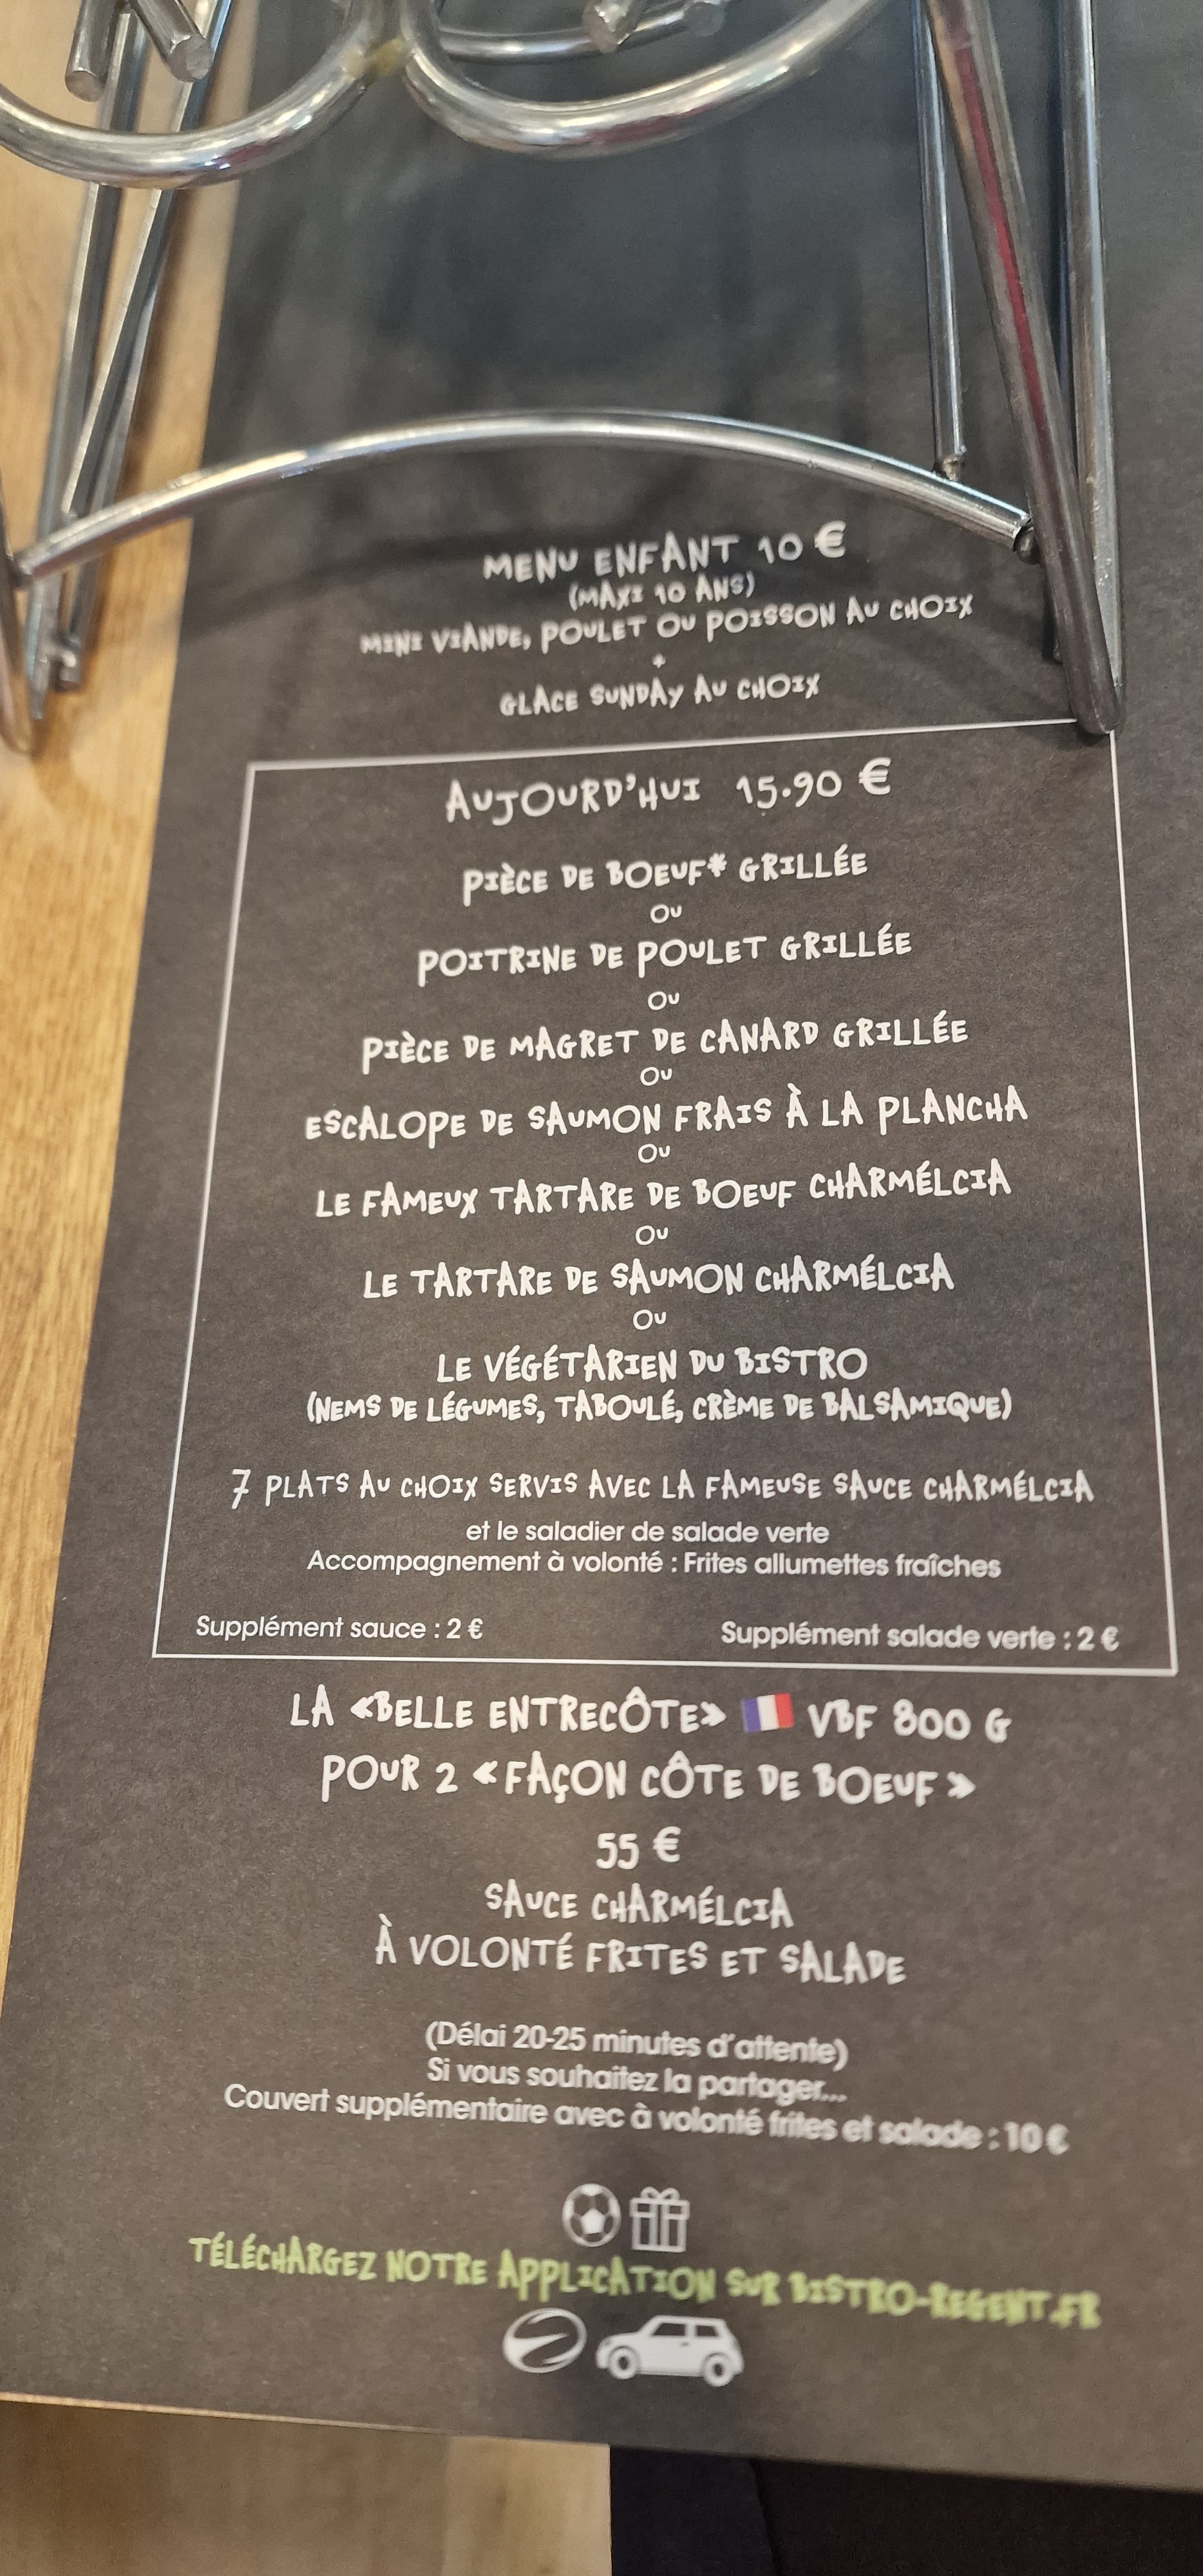 MENU ENFANT 10 €
(MAXI 10 ANS)
MINI VIANDE, POULET OU POISSON AU CHOIX
+
GLACE SUNDAY AU CHOIX
AUJOURD'HUI 15.90 €
PIÈCE DE BOEUF* GRILLÉE
OU
POITRINE DE POULET GRILLÉE
OU
PIÈCE DE MAGRET DE CANARD GRILLÉE
OU
ESCALOPE DE SAUMON FRAIS À LA PLANCHA
OU
LE FAMEUX TARTARE DE BOEUF CHARMÉLCIA
OU
LE TARTARE DE SAUMON CHARMÉLCIA
OU
LE VÉGÉTARIEN DU BISTRO
(NEMS DE LÉGUMES, TABOULÉ, CRÈME DE BALSAMIQUE)
7 PLATS AU CHOIX SERVIS AVEC LA FAMEUSE SAUCE CHARMÉLCIA
et le saladier de salade verte
Accompagnement à volonté : Frites allumettes fraîches
Supplément sauce : 2 € Supplément salade verte : 2 €
LA «BELLE ENTRECÔTE» VBF 800 G
POUR 2 « FAÇON CÔTE DE BOEUF »
55 €
SAUCE CHARMÉLCIA
À VOLONTÉ FRITES ET SALADE
(Délai 20-25 minutes d'attente)
Si vous souhaitez la partager...
Couvert supplémentaire avec à volonté frites et salade : 10 €
TÉLÉCHARGEZ NOTRE APPLICATION SUR BISTRO-REGENT.FR